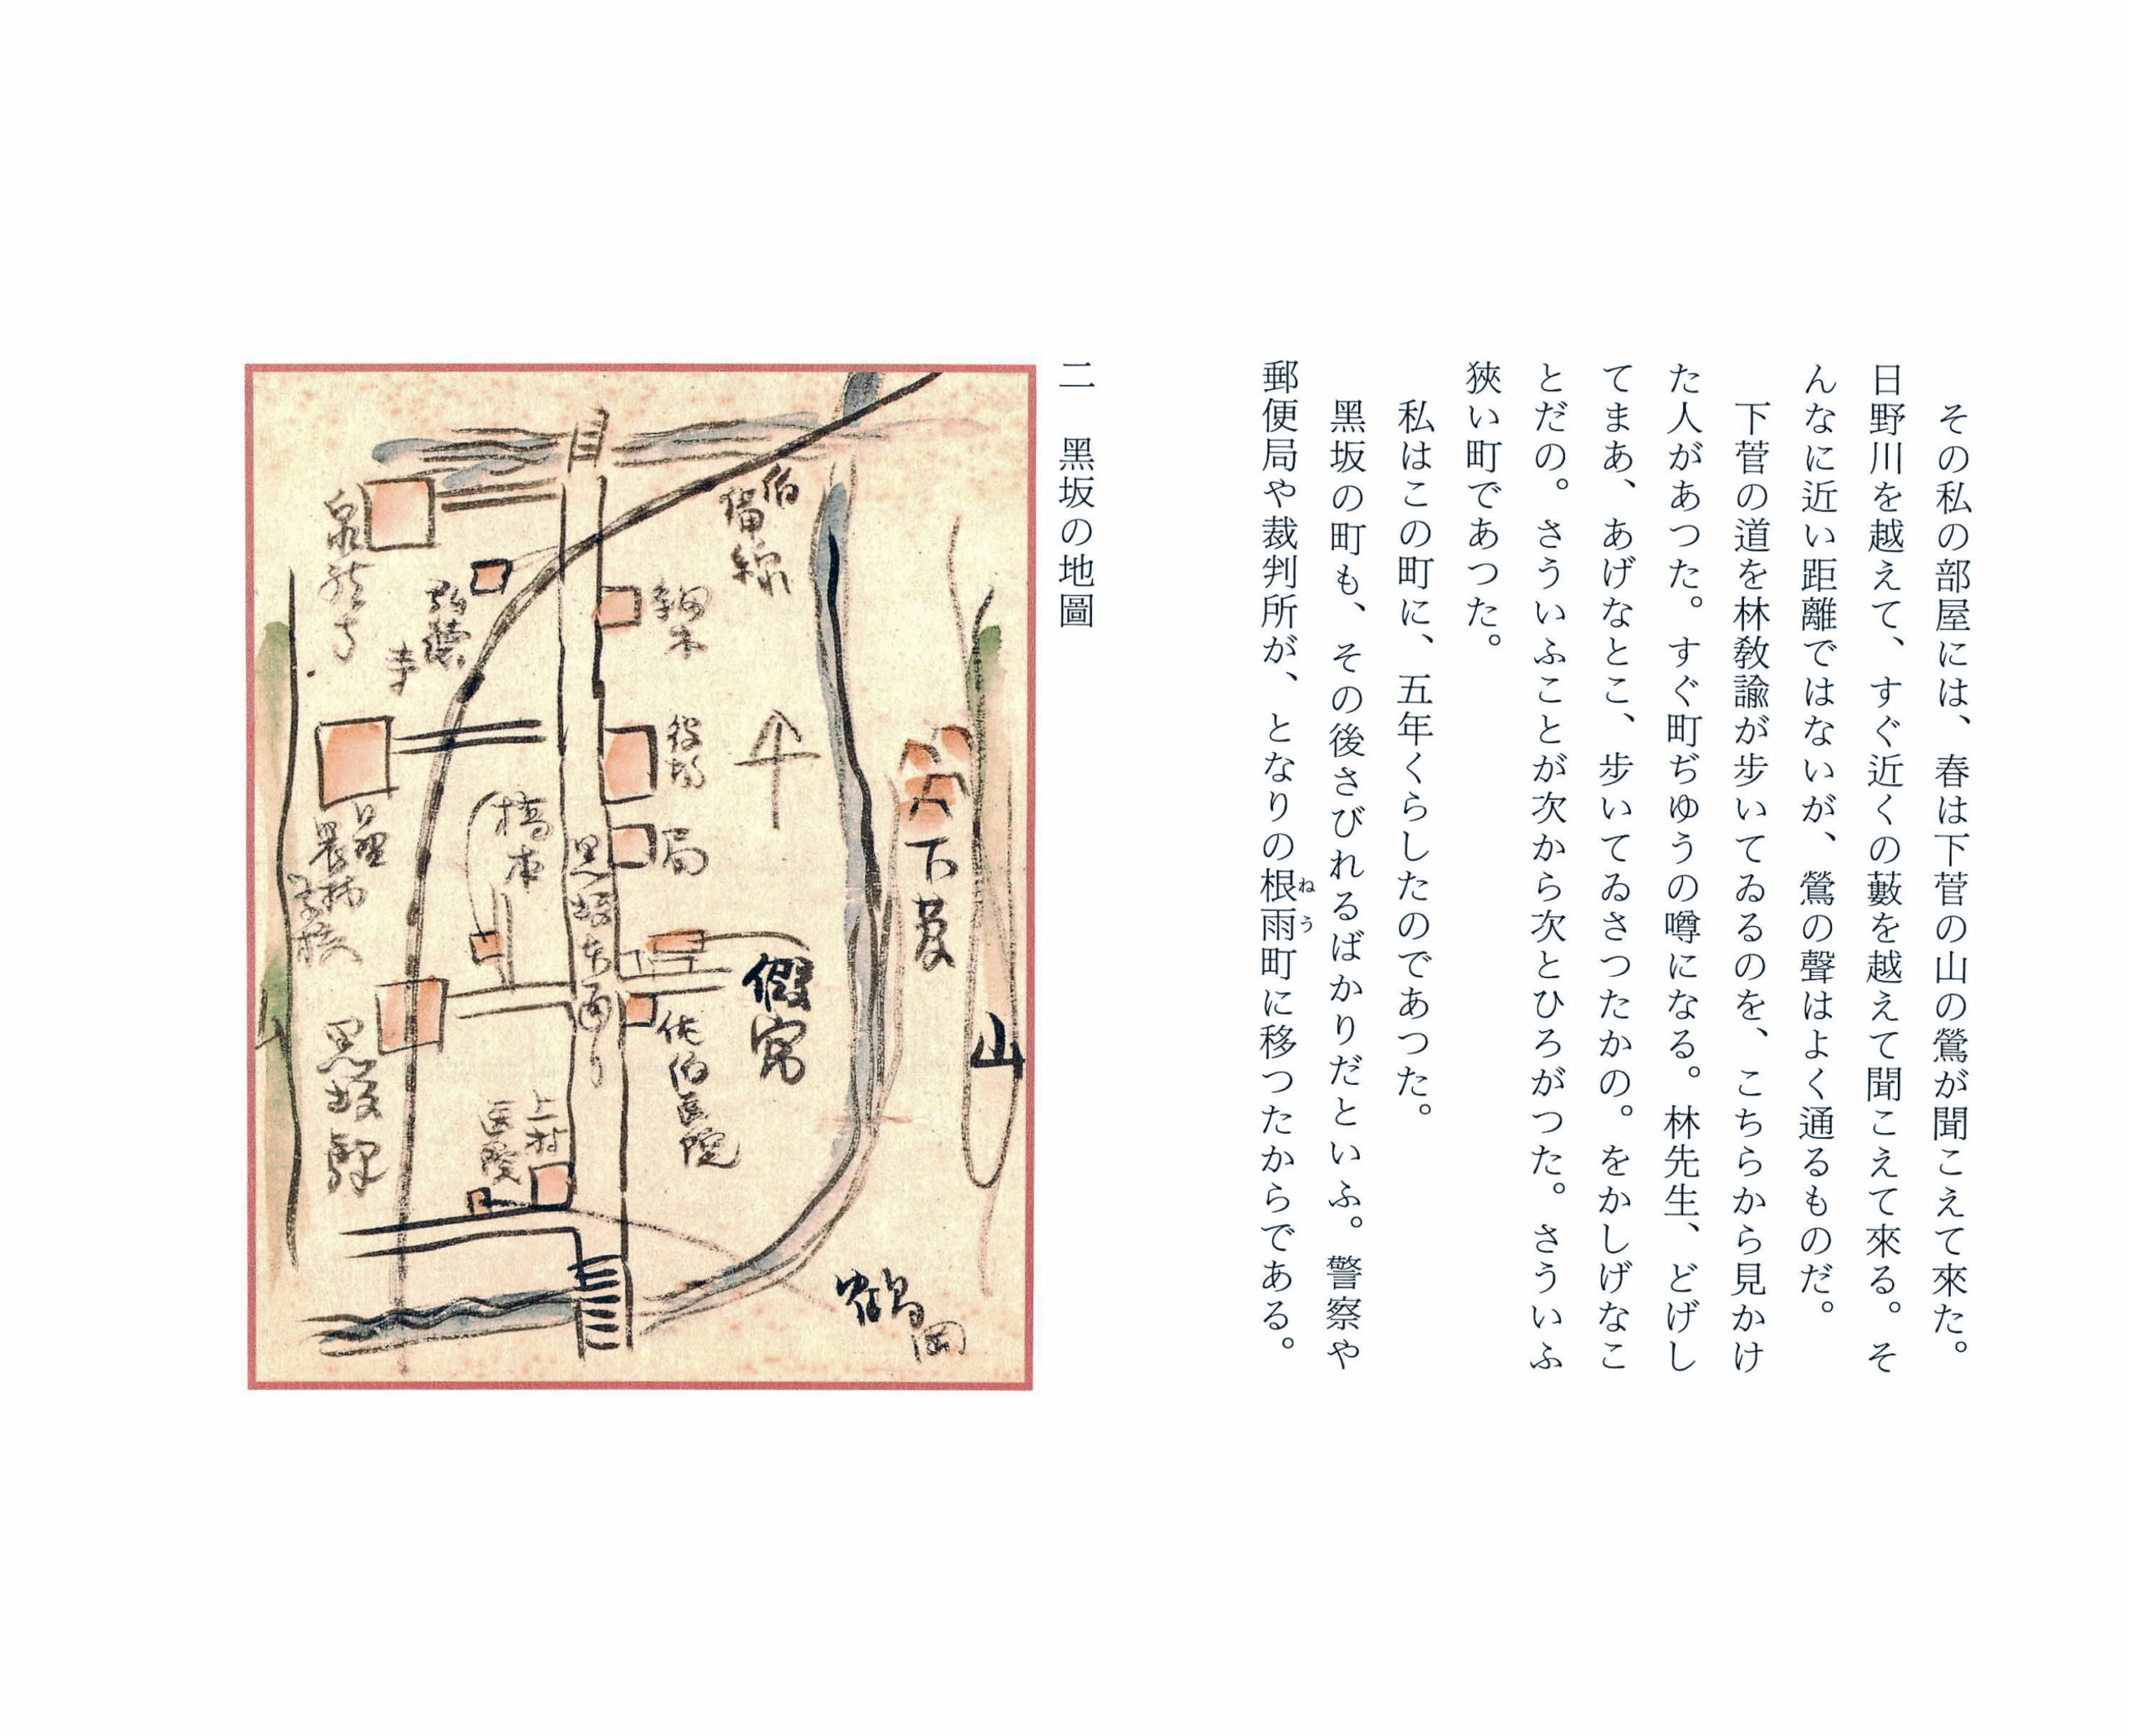 その私の部屋には、春は下菅の山の鶯が聞こえて來た。
日野川を越えて、すぐ近くの藪を越えて聞こえて來る。そ
んなに近い距離ではないが、鶯の聲はよく通るものだ。
下菅の道を林敎諭が歩いてゐるのを、こちらから見かけ
た人があつた。すぐ町ぢゆうの噂になる。林先生、どげし
てまあ、あげなとこ、歩いてゐさつたかの。をかしげなこ
とだの。さういふことが次から次とひろがつた。さういふ
狹い町であつた。
私はこの町に、五年くらしたのであつた。
黑坂の町も、その後さびれるばかりだといふ。警察や
郵便局や裁判所が、となりの根雨町に移つたからである。
ねう
二 黑坂の地圖
伯備線
泉龍寺
役場
局
橋本
下菅
假寓
黒坂本通り
佐伯医院
山
山
黒坂駅
上村医院
鶴岡